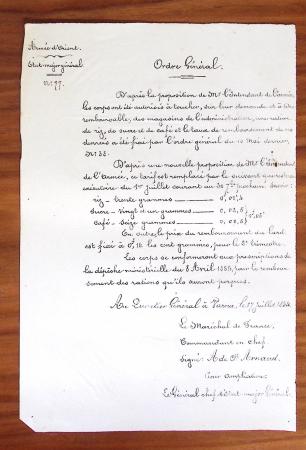 Armée d'Orient.
Etat-major général
N° 77.
Ordre Général.
D'après la proposition de Mr l'Intendant de l'armée,
les corps ont été autorisés à toucher, sur leur demande et à titre
remboursable, des magasins de l'administration, une ration
de riz, de sucre et de café et le taux de remboursement de ces
denrées a été fixé par l'ordre général du 10 Mai dernier,
N° 33.
D'après une nouvelle proposition de Mr l'Intendant
de l'Armée, ce tarif est remplacé par le suivant qui sera
exécutoire du 1er juillet courant au 30 7bre prochain savoir:
riz - trente grammes
sucre - vingt et un grammes
café - seize grammes
En outre le prix de remboursement du lard
est fixé à les cent grammes, pour le 3e trimestre.
Les corps se conformeront aux prescriptions de
la dépêche ministérielle du 8 Avril 1854, pour le rembour-
sement des rations qu'ils auront perçues.
Au Quartier Général à Varna, le juillet 1854.
Le Maréchal de France,
Commandant en chef.
Signé: A de St Arnaud
Pour ampliation:
Le Général chef d'Etat-major Général.